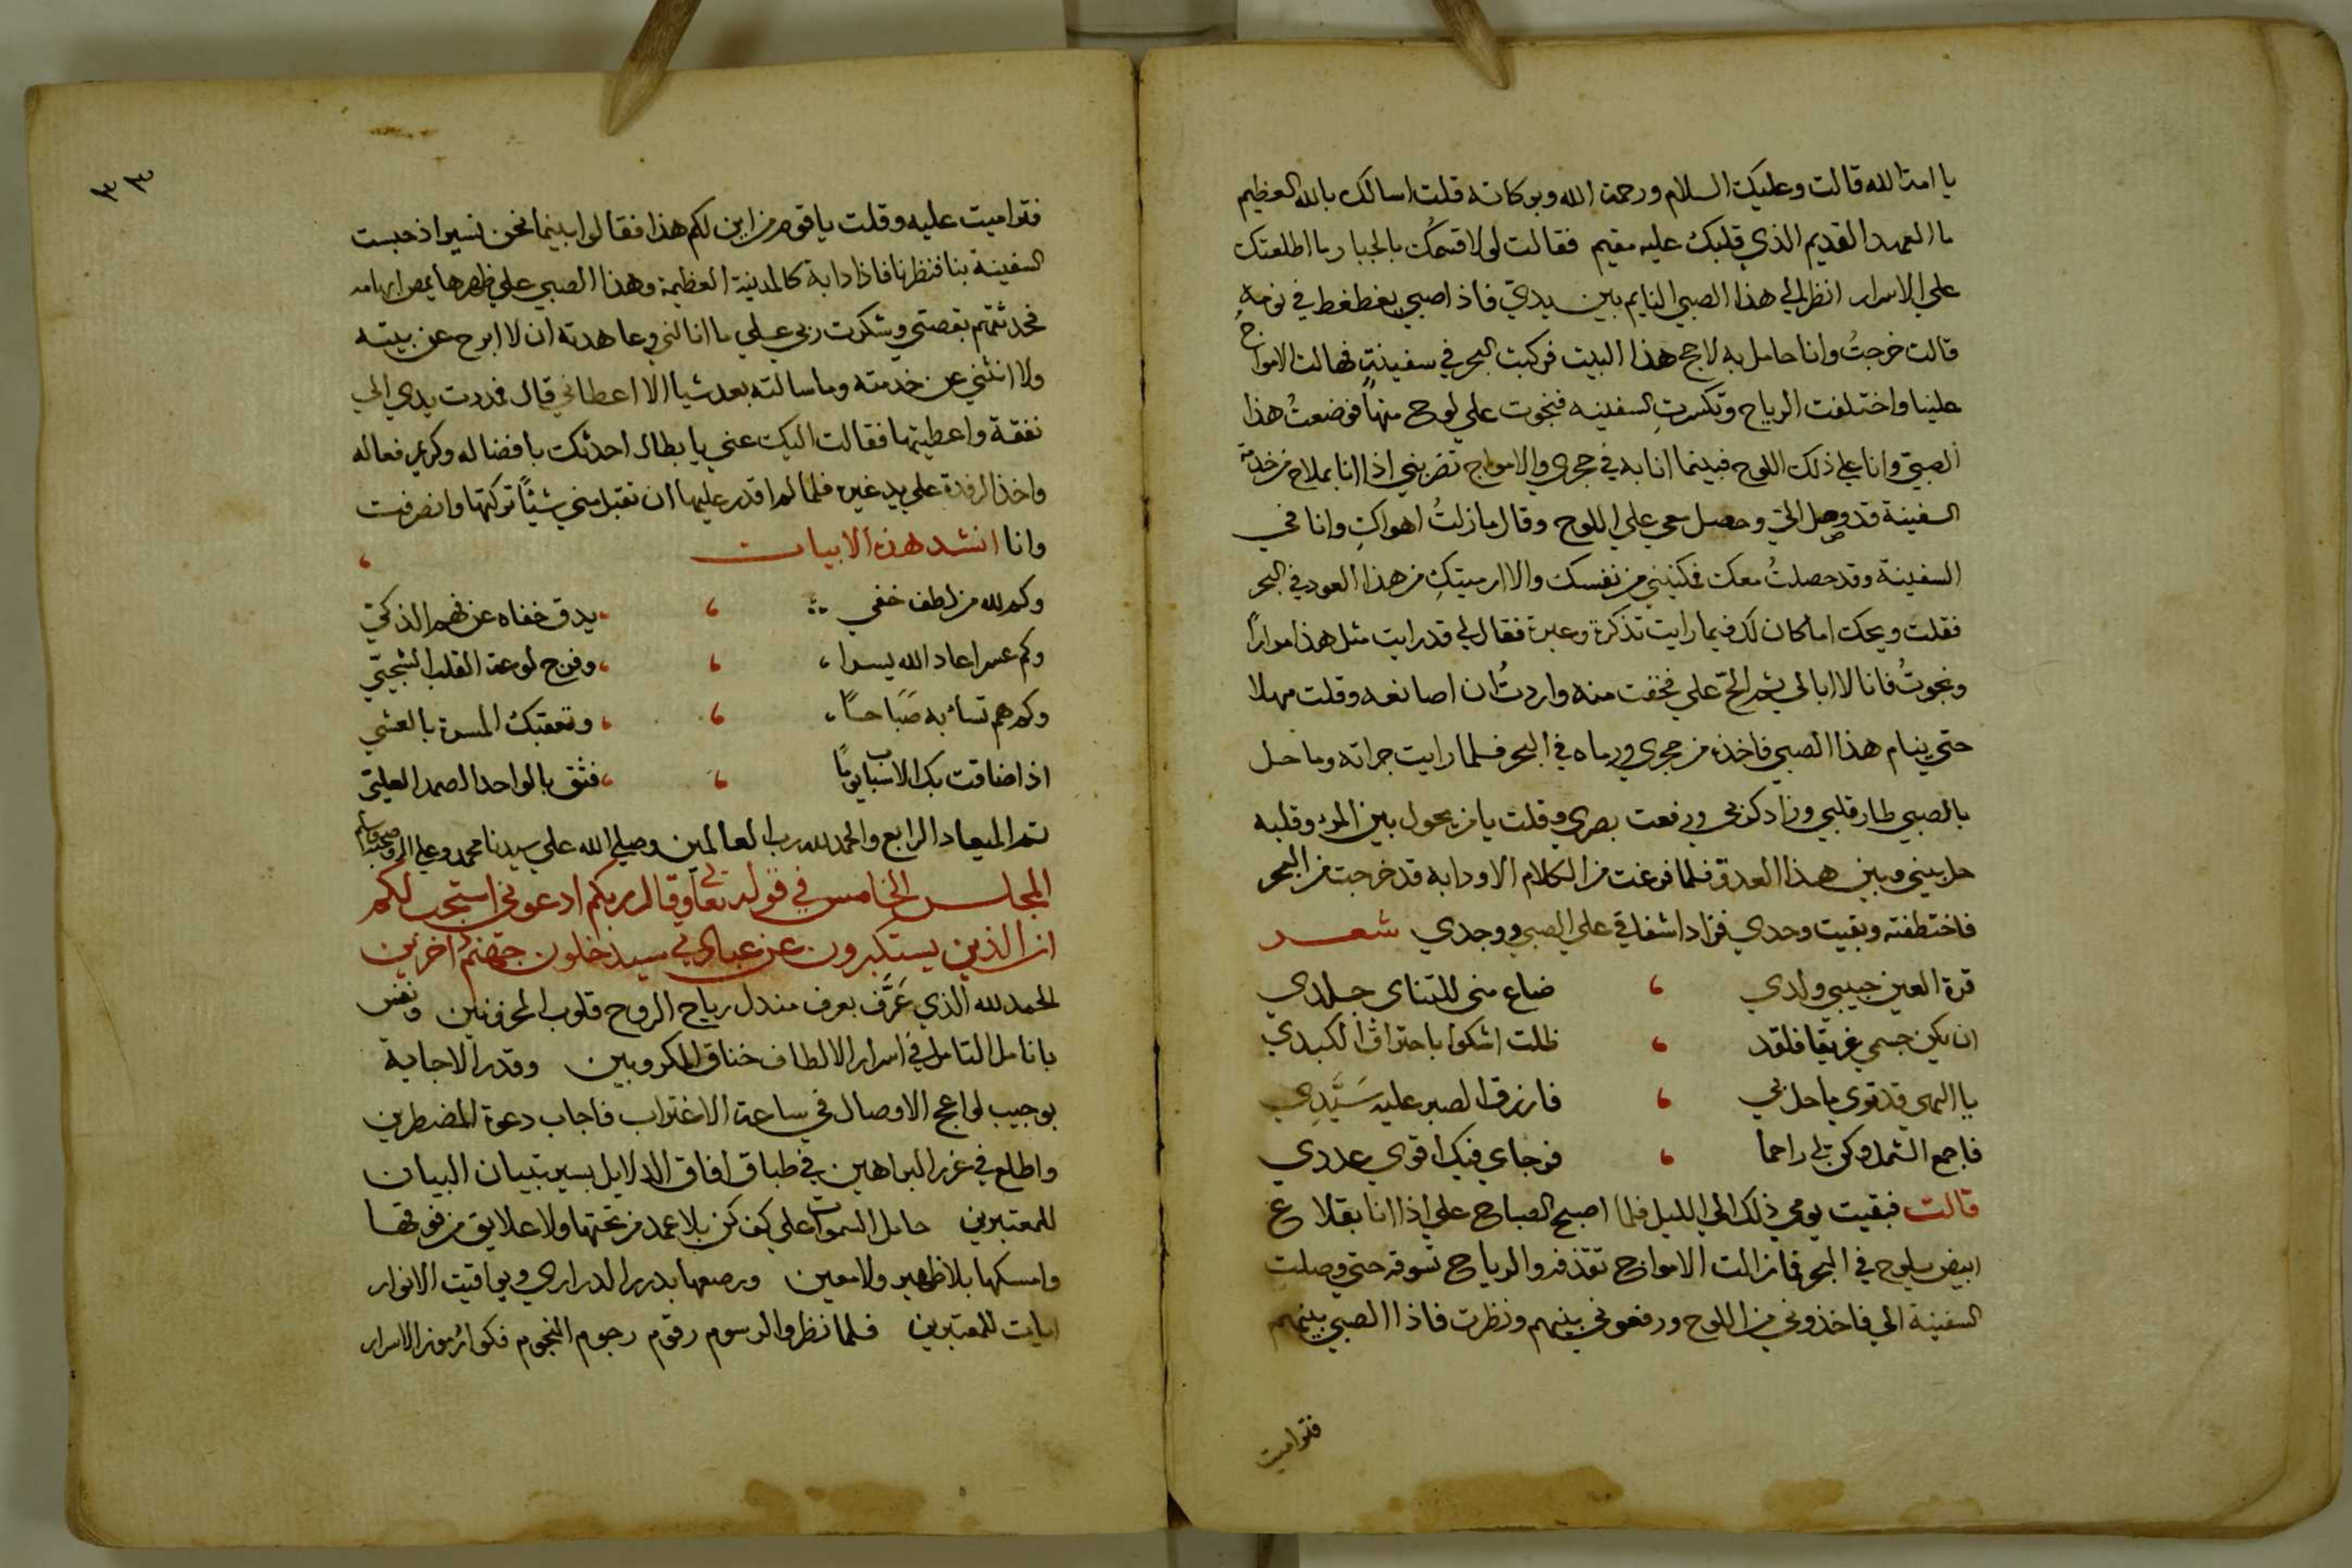 يا امة الله قالت وعليك السلام ورحمة الله وبركاته قلت اسالك بالله العظيم
ما العهد القديم الذي قلبك عليه مقيم فقالت لولا قسمك بالجبار ما اطلعتك
علي الاسرار انظر الي هذا الصبي النايم بين يديّ فاذا صبي يغطغط في نومه
قالت خرجتُ وانا حامل به لاحج هذا البيت فركبت البحر في سفينةٍ فهالت الامواج
علينا واختلفت الرياح وتكسرتِ السفينه فنجوت علي لوح منها فوضعتُ هذا
الصبيّ وانا علي ذلك اللوح فبينما انا به في حجري والامواج تضربني اذا انا بملاح من خدمة
السفينة قد وصل اليّ وحصل معي علي اللوح وقال ما زلتُ اهواكِ وانا في
السفينة وقد حصلتُ معك فمكنيني من نفسك والا ارميتكِ من هذا العود في البحر
فقلت ويحك اما كان لك فيما رايت تذكرة وعبرة فقال لي قد رايت مثل هذا مراراً
ونجوتُ فانا لا ابالي علي فخفت منه واردتُ ان اصانعه وقلت مهلا
حتي ينام هذا الصبي فاخذه من حجري ورماه في البحر فلما رايت جراته وما حل
بالصبي طار قلبي وزاد كربي ورفعت بصري وقلت يا من يحول بين المرء وقلبه
حل بيني وبين هذا العدو فلما فرغت من الكلام الا ودابة قد خرجت من البحر
فاختطفته وبقيت وحدي فزاد اشفاقي علي الصبي ووجدي شعر
قرة العين حبيبي ولدي ، ضاع مني للتناي جلدي
ان يكن جسمي غريقا فلقد ، ظلت اشكوا باحتراق الكبدي
يا الهي قد تري ما حل بي ، فارزق الصبر عليه سَيِّدِي
فاجمع الشمل وكن لي راحما ، فرجاي فيك اقوي عددي
قالت فبقيت يومي ذلك الي الليل فلما اصبح الصباح علي اذا انا بقلاع
ابيض يلوح في البحر فما زالت الامواج تقذفه والرياح تسوقه حتي وصلت
السفينة الي فاخذوني من اللوح ورفعوني بينهم ونظرت فاذا الصبي بينهم
فتراميت
٣٣
فتراميت عليه وقلت يا قوم من اين لكم هذا فقالوا بينما نحن نسير اذ حبست
السفينة بنا فنظرنا فاذا دابة كالمدينة العظيمة وهذا الصبي علي ظهرها يمص ابهامه
فحدثتهم بقصتي وشكرت ربي علي ما انالني وعاهدته ان لا ابرح عن بيته
ولا انثني عن خدمته وما سالته بعد شيا الا اعطاني قال فمددت يدي الي
نفقة واعطيتها فقالت اليك عني يا بطال احدثك بافضاله وكريم فعاله
واخذ الرفدة علي يد غيره فلما لم اقدر عليها ان تقبل مني شيئًا تركتها وانصرفت
وانا انشد هذه الابيات ،
وكم لله من لطف خفي ، يدق خفاه عن فهم الذكيّ
وكم عسر اعاد الله يسرا ، وفرج لوعة القلب الشجيّ
وكم هم تساء به صَبَاحاً ، وتعقبك المسرة بالعشي
اذا ضاقت بك الاسباب يومًا ، فثق بالواحد الصمد العليّ
تم الميعاد الرابع والحمد لله رب العالمين وصلي الله علي سيدنا محمد وعلي اله وصحبه وسلم
المجلس الخامس في قوله تعالي وقال ربكم ادعوني استجب لكم
ان الذين يستكبرون عن عبادتي سيدخلون جهنم داخرين
الحمد لله الذي عَرَّف بعرف مندل رياح الروح قلوب المحزونين ونفس
بانامل التامل في اسرار الالطاف خناق المكروبين وقدر الاجابة
بوجيب لواعج الاوصال في ساعة الاغتراب فاجاب دعوة المضطرين
واطلع في غرر البراهين في طباق افاق الدلايل بسير تبيان البيان
للمعتبرين حامل السموات علي كف كن بلا عمد من تحتها ولا علايق من فوقها
وامسكها بلا ظهير ولا معين ورصعها بدرر الدراري ويواقيت الانوار
ايات للمعتبرين فلما نظروا لرسوم رقوم رجوم النجوم فكوا رموز الاسرار